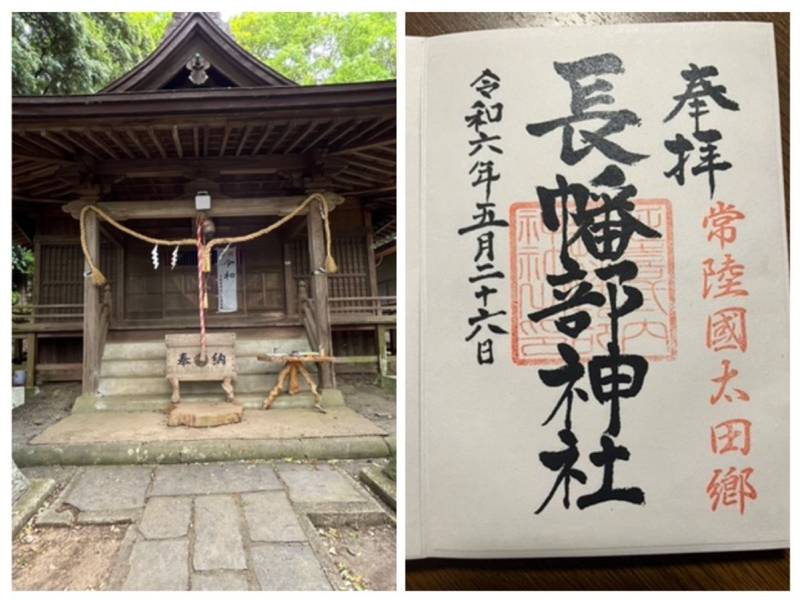 奉納
令和
奉拝
常陸國太田郷
長幡部神社
令和六年五月二十六日